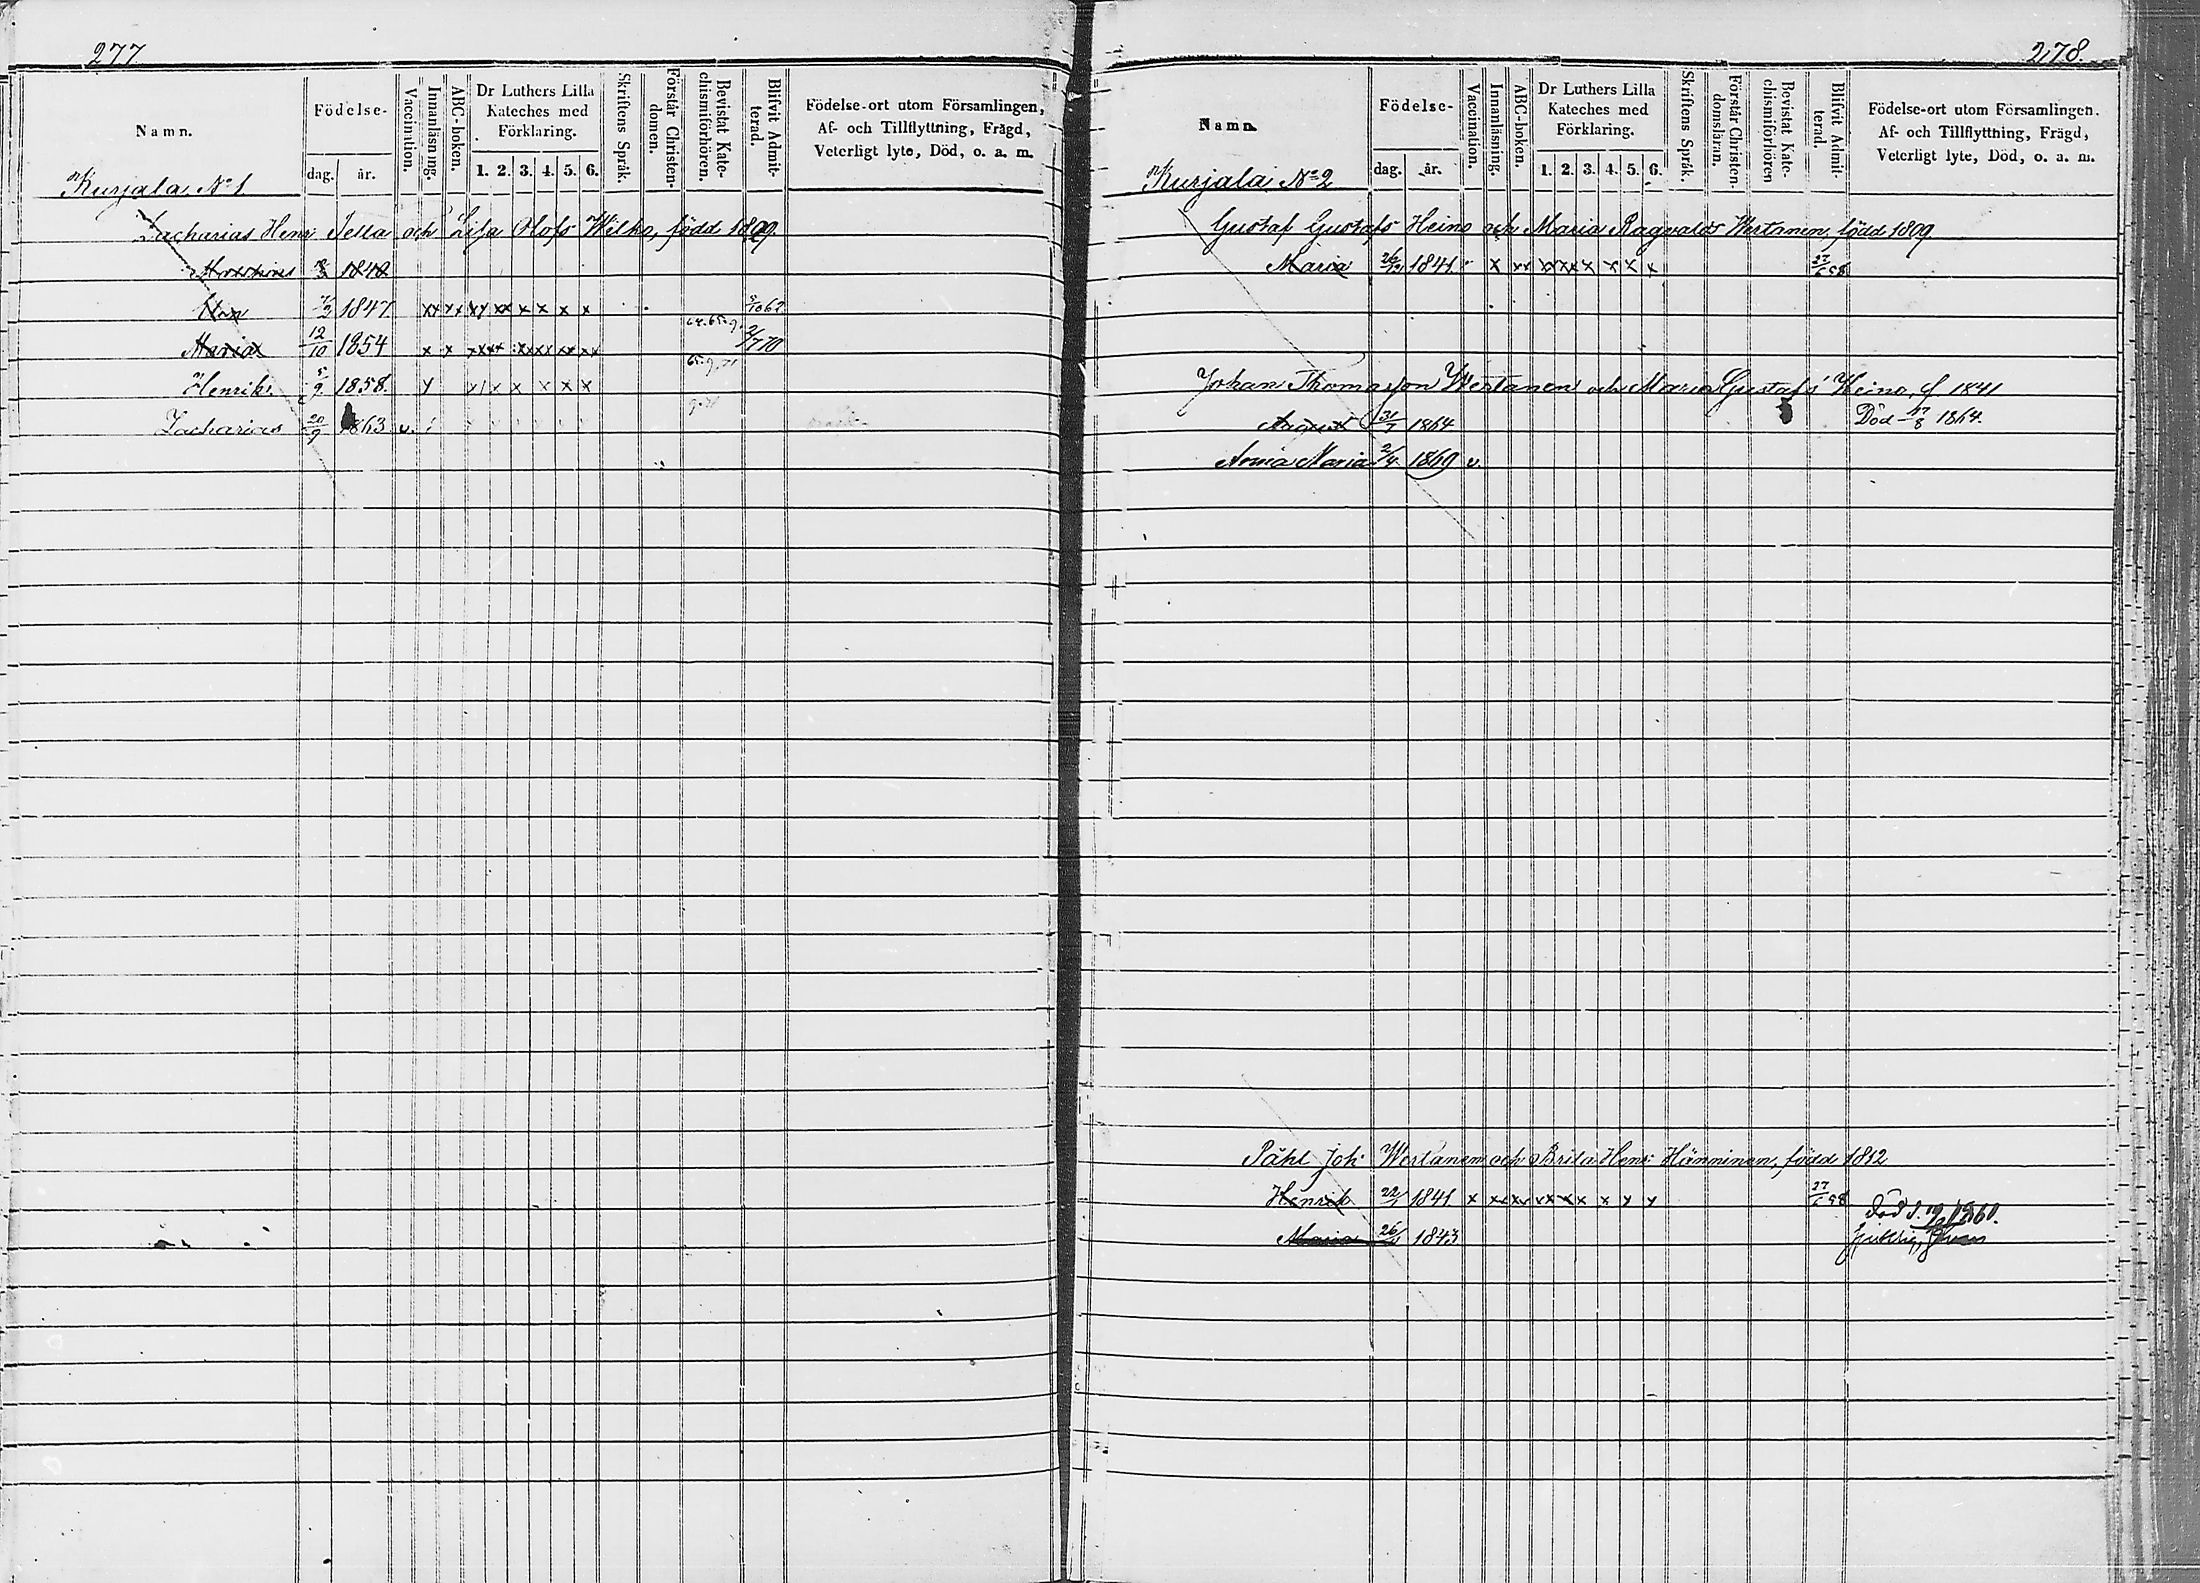 277
Namn. Födelse- dag. år. Vaccination. Innanläsning. ABC-boken. Dr Luthers Lilla Kateches med Förklaring. 1. 2. 3. 4. 5. 6. Skriftens Språk. Förstår Christen-domen. Bevistat Kate-chismiförhören. Blifvit Admit-terad. Födelse-ort utom Församlingen, Af- och Tillflyttning, Frägd, Veterligt lyte, Död, o. a. m.
Kurjala No 1
Zacharias Henr: Jella och Lisa Olofs Wilko, född 18
1840
1847 x x x x x x x x x x x x 62
Maria 12/10 1854 x x x x x x x x x x x x x x 2/7 70
Henrik 5/9 1858. x x x x x x x
Zacharias 20/9 1863 v.
278.
Namn. Födelse- dag. år. Vaccination. Innanläsning. ABC-boken. Dr Luthers Lilla Kateches med Förklaring. 1. 2. 3. 4. 5. 6. Skriftens Språk. Förstår Christen-domsläran. Bevistat Kate-chismiförhören Blifvit Admit-terad. Födelse-ort utom Församlingen. Af- och Tillflyttning, Frägd, Veterligt lyte, Död, o. a. m.
Kurjala No 2
Gustaf Gustafs Heino och Maria Ragvalds Wertanen, född 1809
Maria 26/12 1841 x x x x x x x x x x x 27/6 58
Johan Thomasson Wertanen och Maria Gustafs Heino, f. 1841
August 31/7 1864 Död 17/8 1864.
Anna Maria 2/4 1869 v.
Påhl Joh: Wertanen och Brita Henr: Hänninen, född 1812
Henrik 22/1 1841. x x x x x x x x x x x x 27/6 58
Maria 26 1843 Död d. 1860.